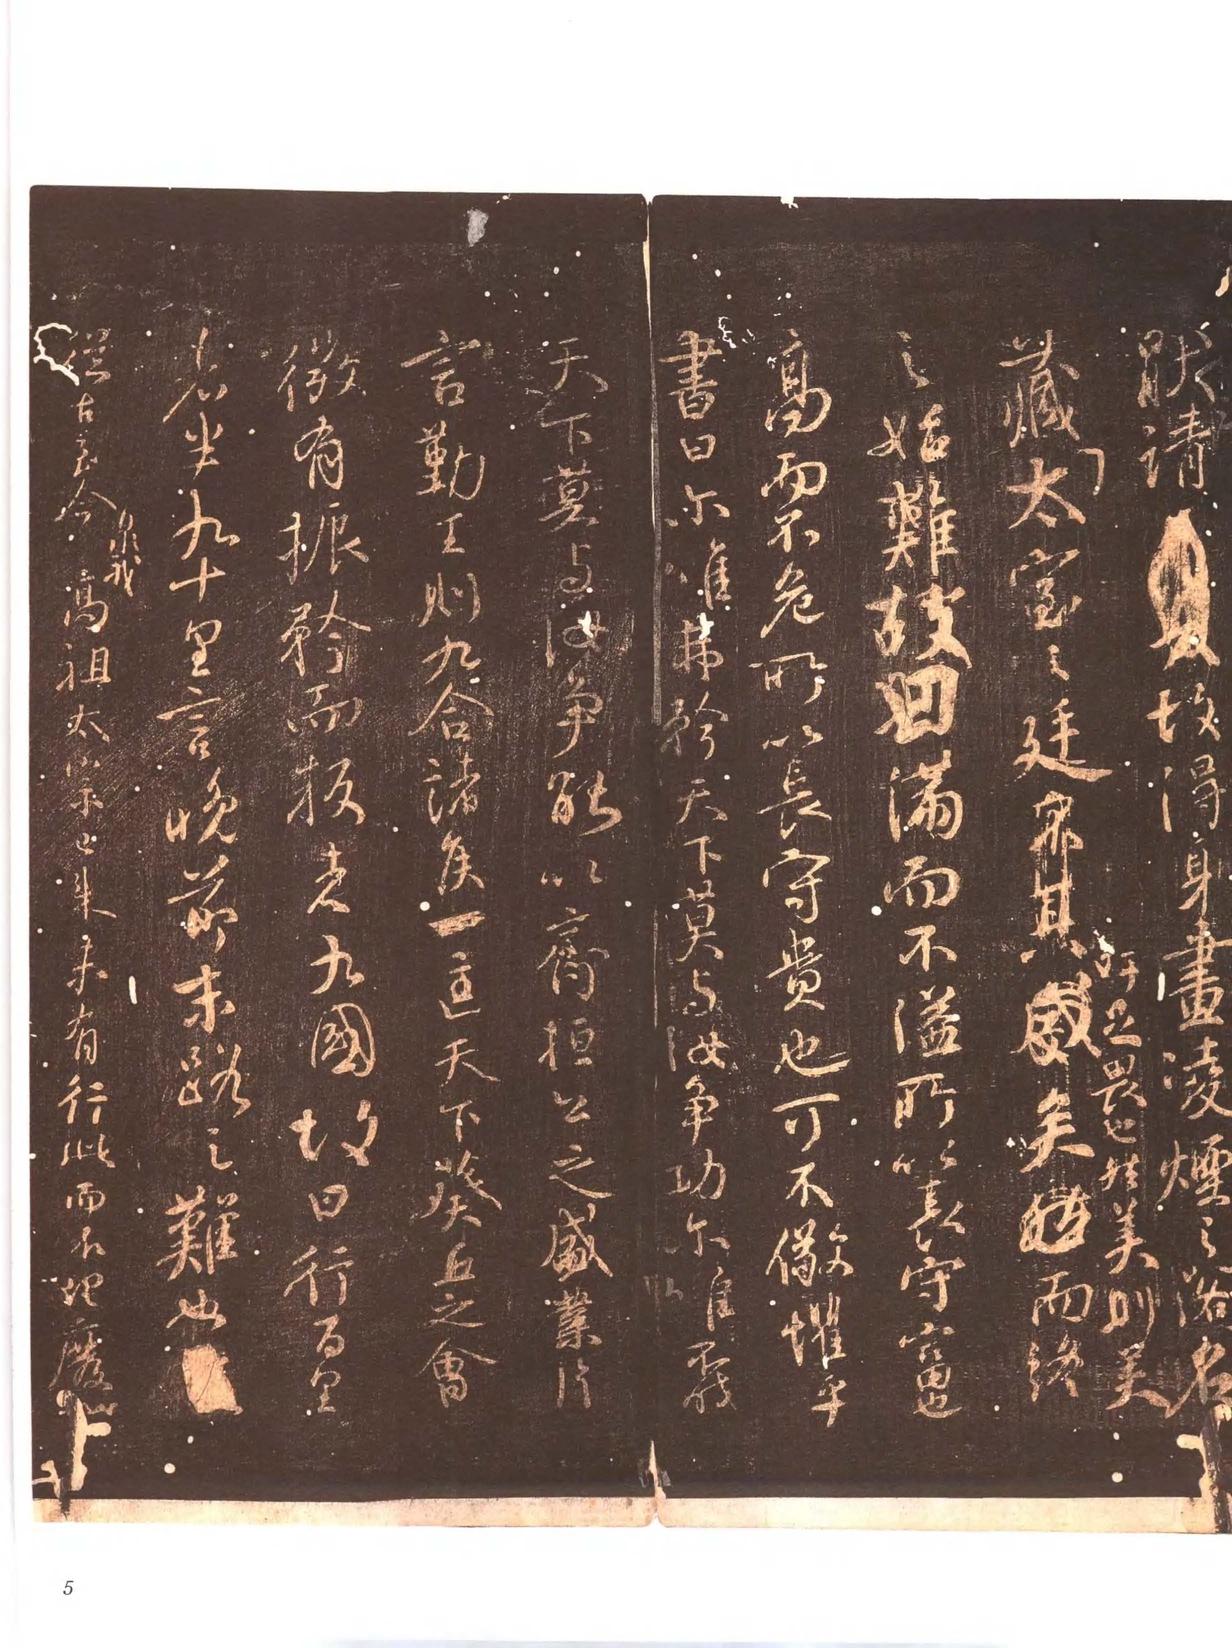 獻請足下以故得身畫凌煙之閣名
藏太室之廷吁足畏也然美則美
矣而終
之始難故曰滿而不溢所以長守富也
高而不危所以長守貴也可不儆懼乎
書曰尔唯弗矜天下莫与汝争功尔唯不伐
天下莫与汝争能以齊桓公之盛業片
言勤王則九合諸侯一匡天下葵丘之會
微有振矜而叛者九國故曰行百里
者半九十里言晚節末路之難也
從古至今泉我高祖太宗已来未有行此而不理廢
5